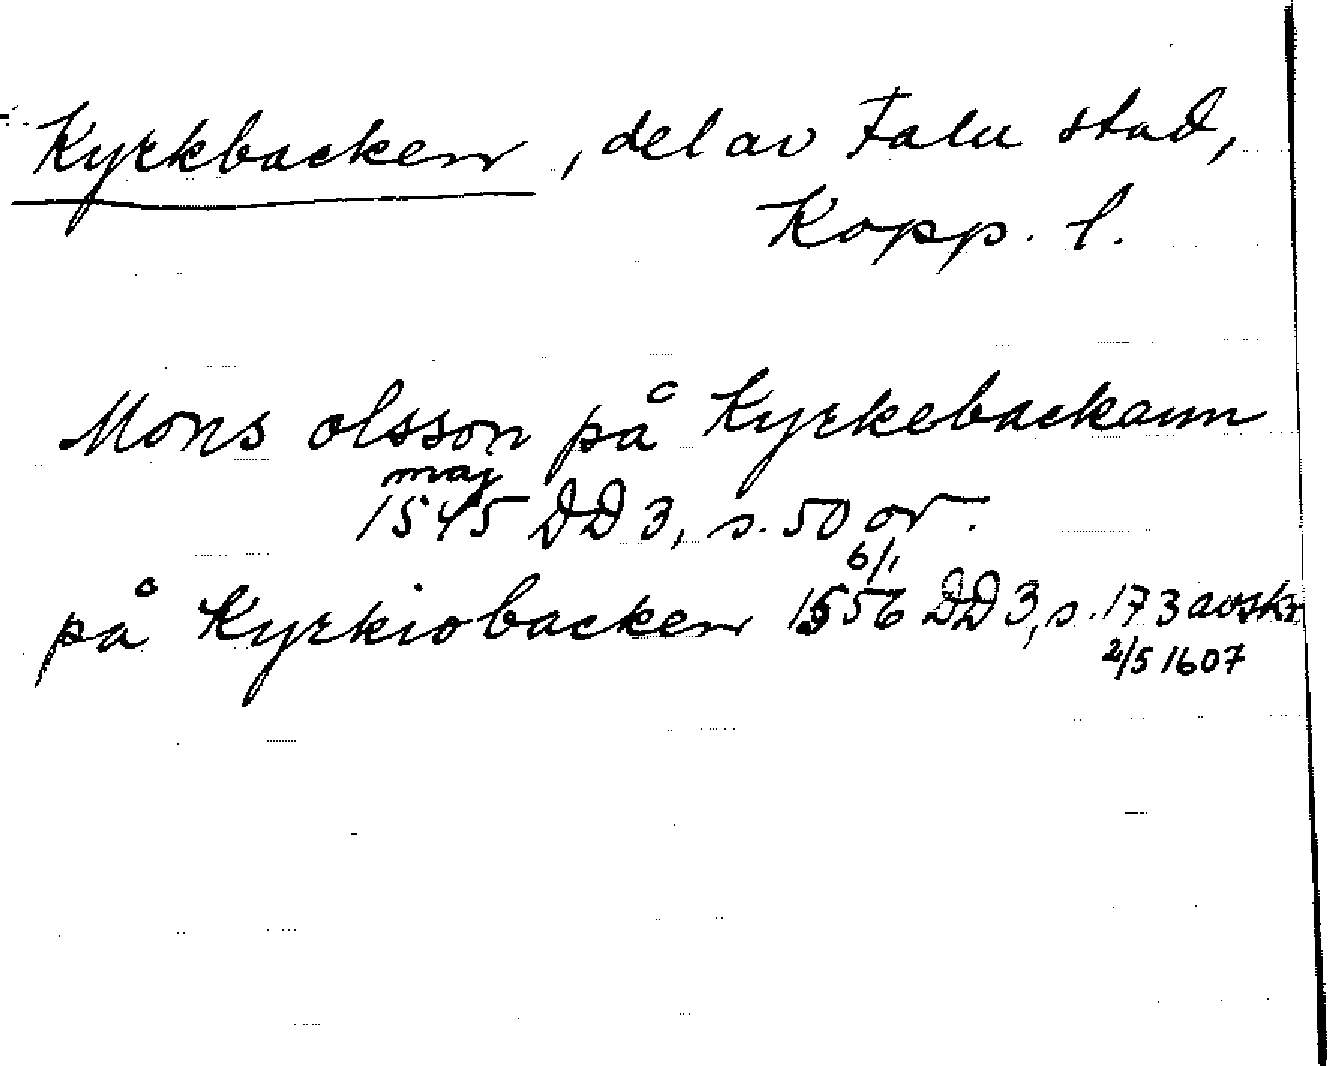 Kyrkbacken, del av Falu stad,
Kopp. l.
Mons olsson på Kyrkebackann
maj
1545 DD 3, s. 50 or.
6/1
på Kyrkiobacken 1556 DD 3, s. 173 avskr
2/5 1607